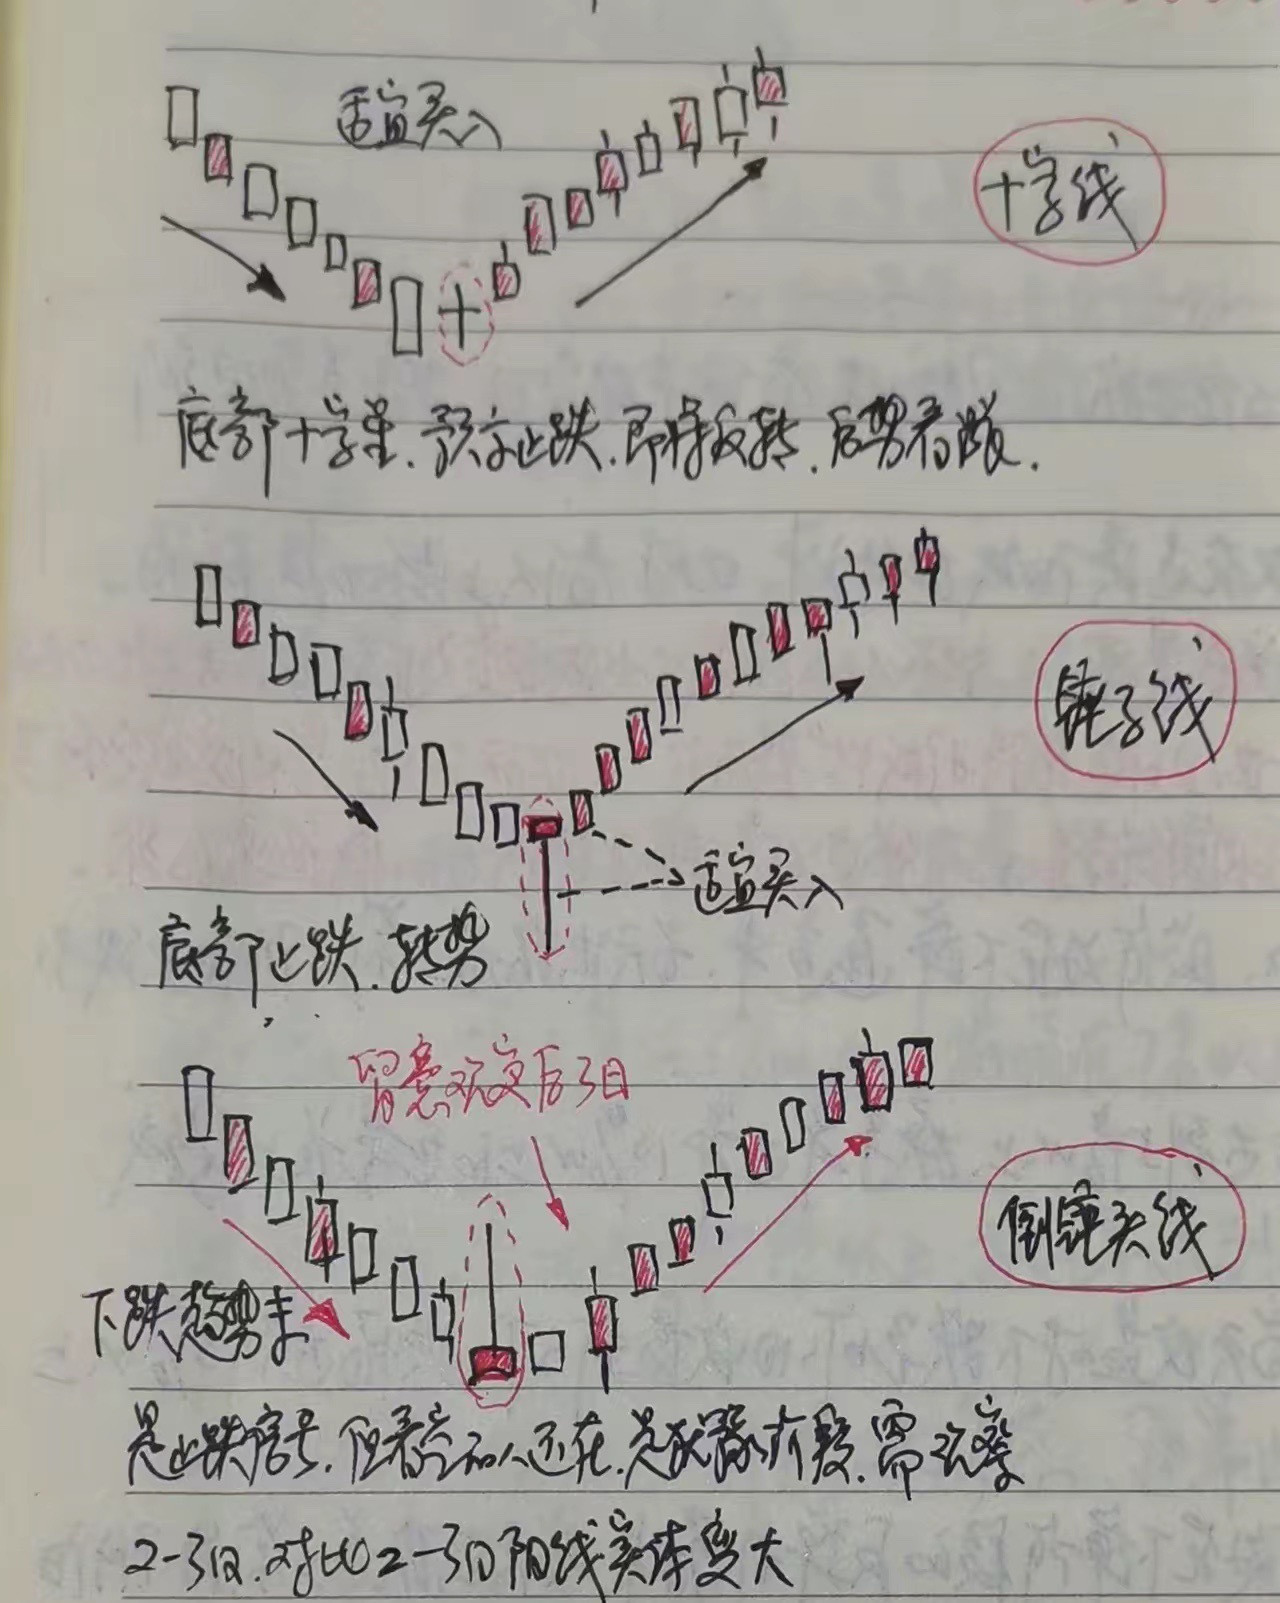 适宜买入
十字线
底部十字星.预示止跌.即将反转.后势看涨.
锤子线
适宜买入
底部止跌.转势
留意观变后3日
倒锤头线
下跌趋势末
是止跌信号.但看空的人还在.是犹豫阶段.需观察
2-3日.对比2-3日阳线实体变大